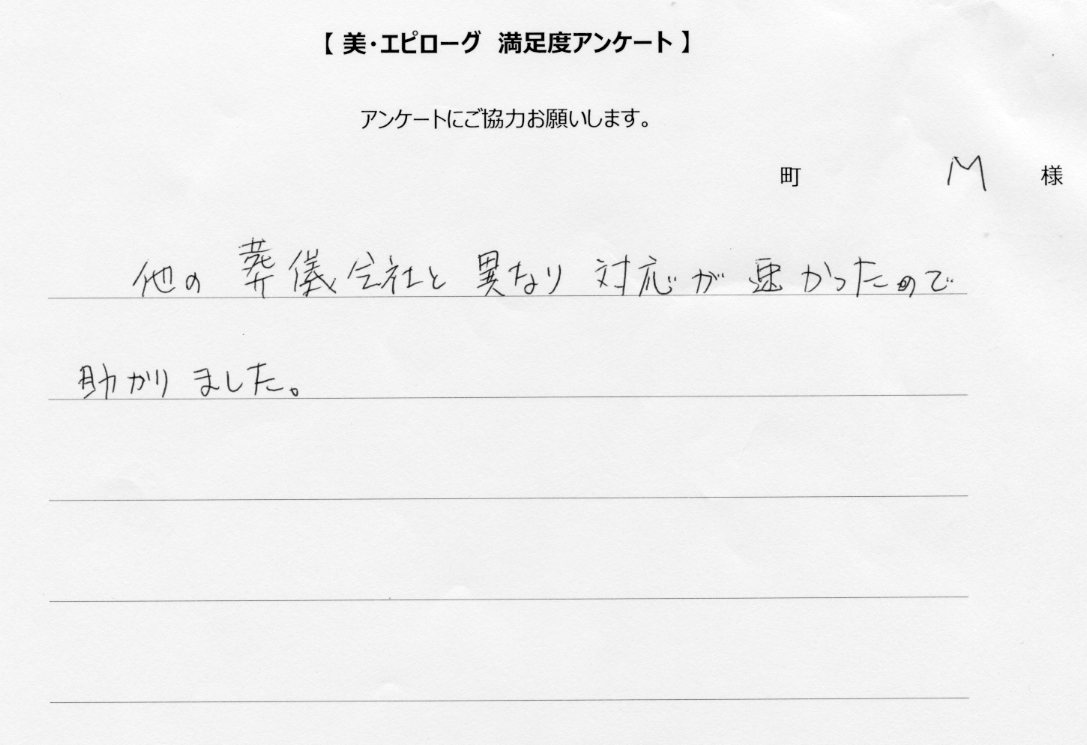 【 美・エピローグ 満足度アンケート 】
アンケートにご協力お願いします。
町 M 様
他の葬儀会社と異なり対応が速かったので
助かりました。